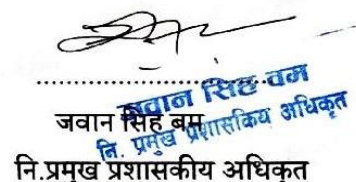 ..............................
जवान सिंह वम
नि. प्रमुख प्रशासकिय अधिकृत
जवान सिंह बम
नि.प्रमुख प्रशासकीय अधिकृत